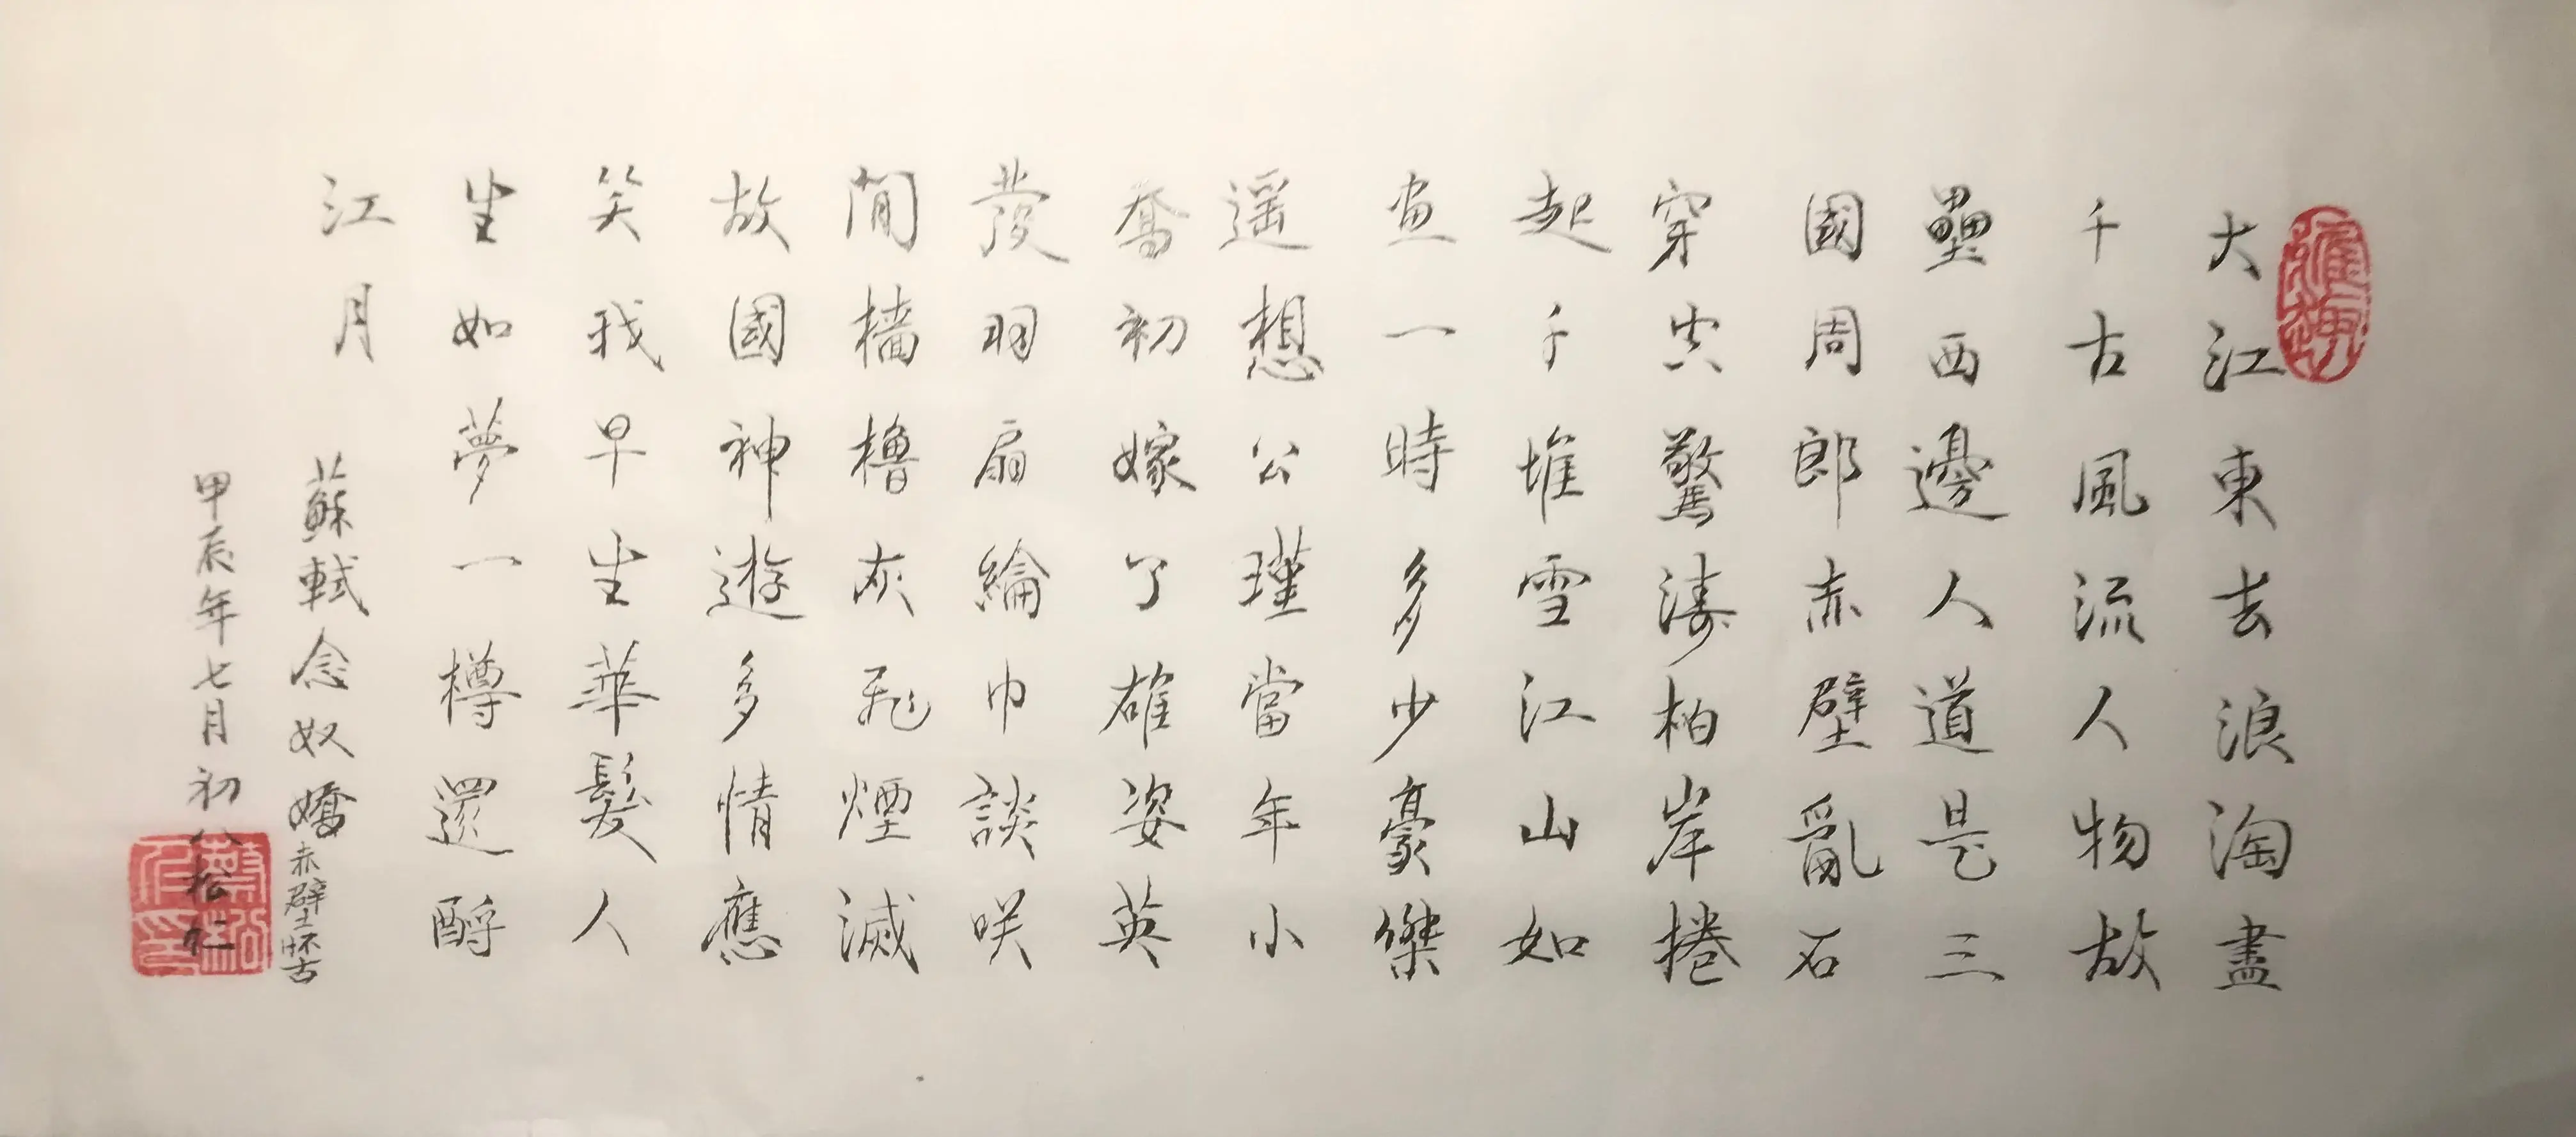 大江東去浪淘盡
千古風流人物故
壘西邊人道是三
國周郎赤壁亂石
穿空驚濤柏岸捲
起千堆雪江山如
畫一時多少豪傑
遥想公瑾當年小
喬初嫁了雄姿英
發羽扇綸巾談咲
間檣櫓灰飛煙滅
故國神遊多情應
笑我早生華髮人
生如夢一樽還酹
江月
蘇軾念奴嬌赤壁怀古
甲辰年七月初八松仁